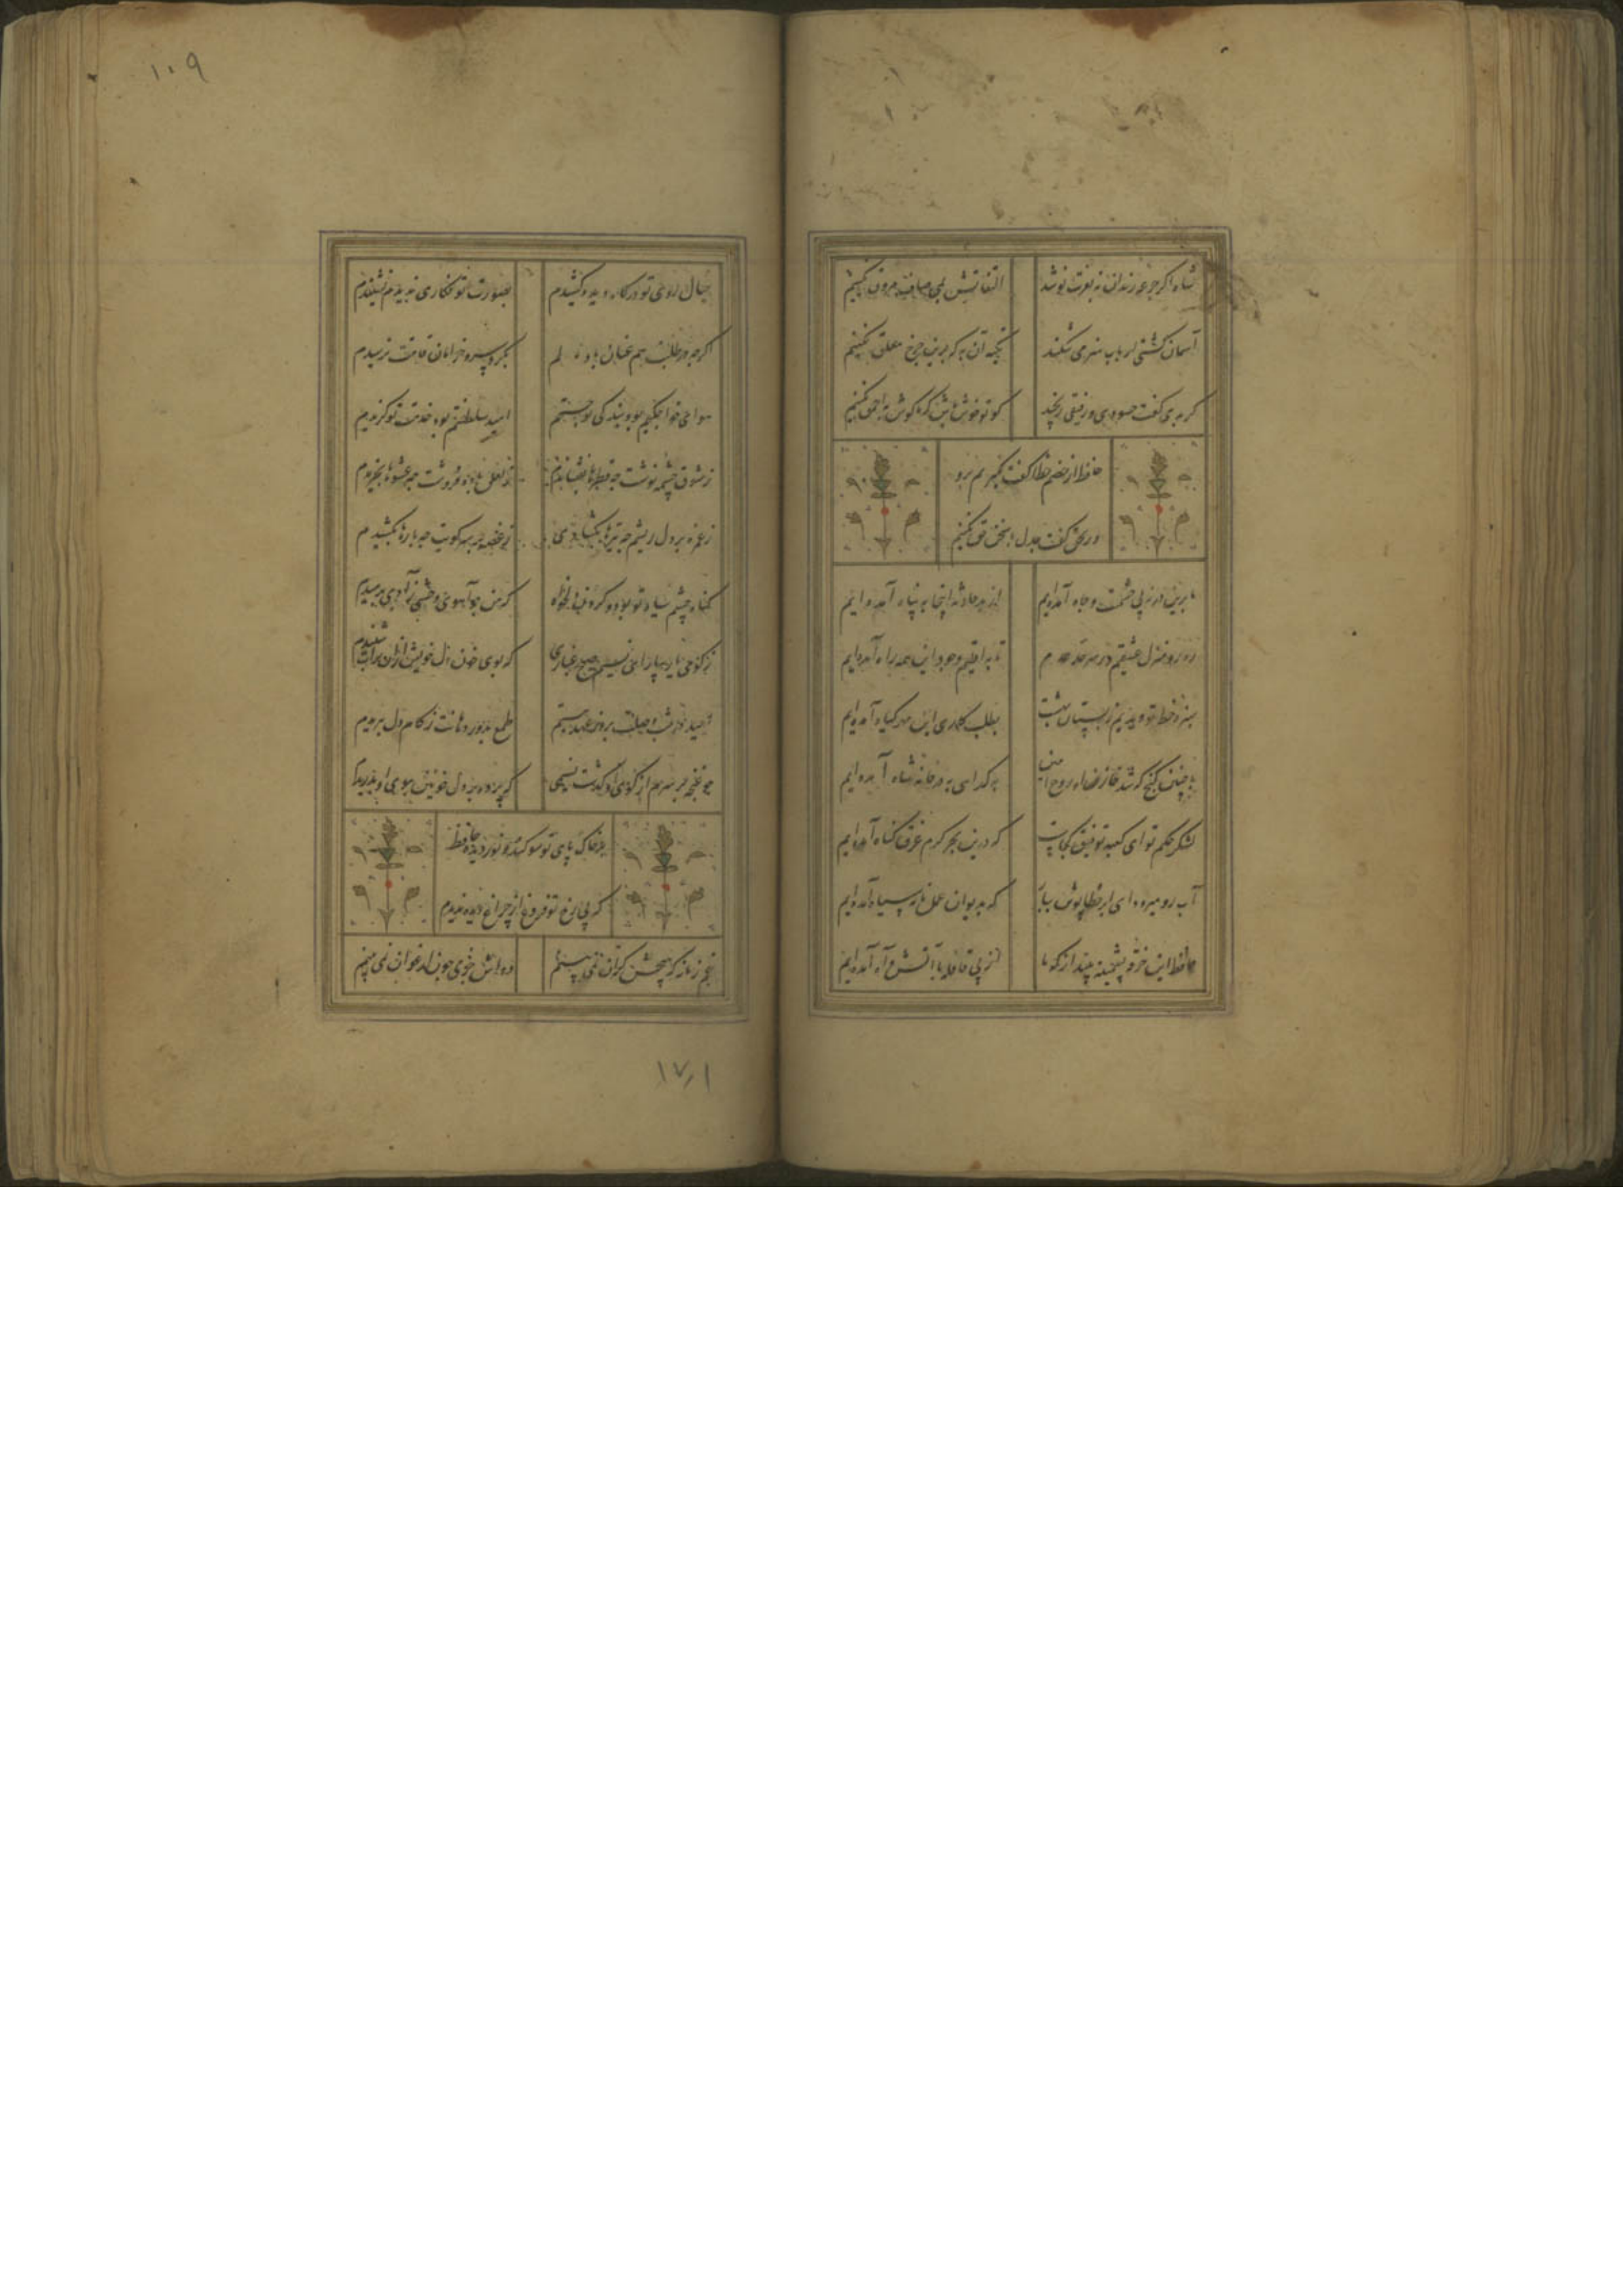 شاه اگر جرعه رندان نه بعزت نوشد
التفاتش بمی صاف مروق نکنیم
آسمان کشتی ارباب هنر می شکند
تکیه آن به که برین چرخ معلق نکنیم
گر بدی گفت حسودی و رفیقی رنجید
گو تو خوش باش که ما گوش به احمق نکنیم
حافظ ار خصم خطا گفت نگیریم برو
ور بحق گفت جدل با سخن حق نکنیم
ما برین در نه پی حشمت و جاه آمده‌ایم
از بد حادثه اینجا به پناه آمده‌ایم
ره رو منزل عشقیم و ز سر حد عدم
تا به اقلیم وجود این همه راه آمده‌ایم
سبزه خط تو دیدیم ز بستان بهشت
بطلب کاری این مهر گیاه آمده‌ایم
با چنین گنج که شد خازن او روح امین
به گدایی به در خانه شاه آمده‌ایم
لنگر حلم تو ای کشتی توفیق کجاست
که درین بحر کرم غرق گناه آمده‌ایم
آب رو میرود ای ابر خطاپوش ببار
که به دیوان عمل نامه سیاه آمده‌ایم
حافظ این خرقه پشمینه بینداز که ما
از پی قافله با آتش آه آمده‌ایم
۱۰۹
خیال روی تو در کارگاه دیده کشیدم
بصورت تو نگاری ندیدم و نشنیدم
اگرچه در طلبت هم عنان باد شمالم
بگرد سرو خرامان قامتت نرسیدم
هوای خواجگیم بود بندگی تو جستم
امید سلطنتم بود خدمت تو گزیدم
ز شوق چشمه نوشت چه قطرها بفشاندم
ز لعل باده فروشت چه عشوها بخریدم
ز غمزه بر دل ریشم چه تیرها بگشادی
ز غصه بر سر کویت چه بارها بکشیدم
گناه چشم سیاه تو بود و گردن دلخواه
که من چو آهوی وحشی ز آدمی برمیدم
ز کوی یار بیار ای نسیم صبح غباری
که بوی خون دل خویش از آن تراب شنیدم
امید در شب وصلت بروز عهد ببستم
طمع بدور دهانت ز کام دل ببریدم
چو غنچه بر سرم از کوی او گذشت نسیمی
که پرده بر دل خونین ببوی او بدریدم
بخاک پای تو سوگند و نور دیده حافظ
که بی رخ تو فروغ از چراغ دیده ندیدم
غم زمانه که هیچش کران نمی بینم
دواش جز می چون ارغوان نمی بینم
۱۷۱